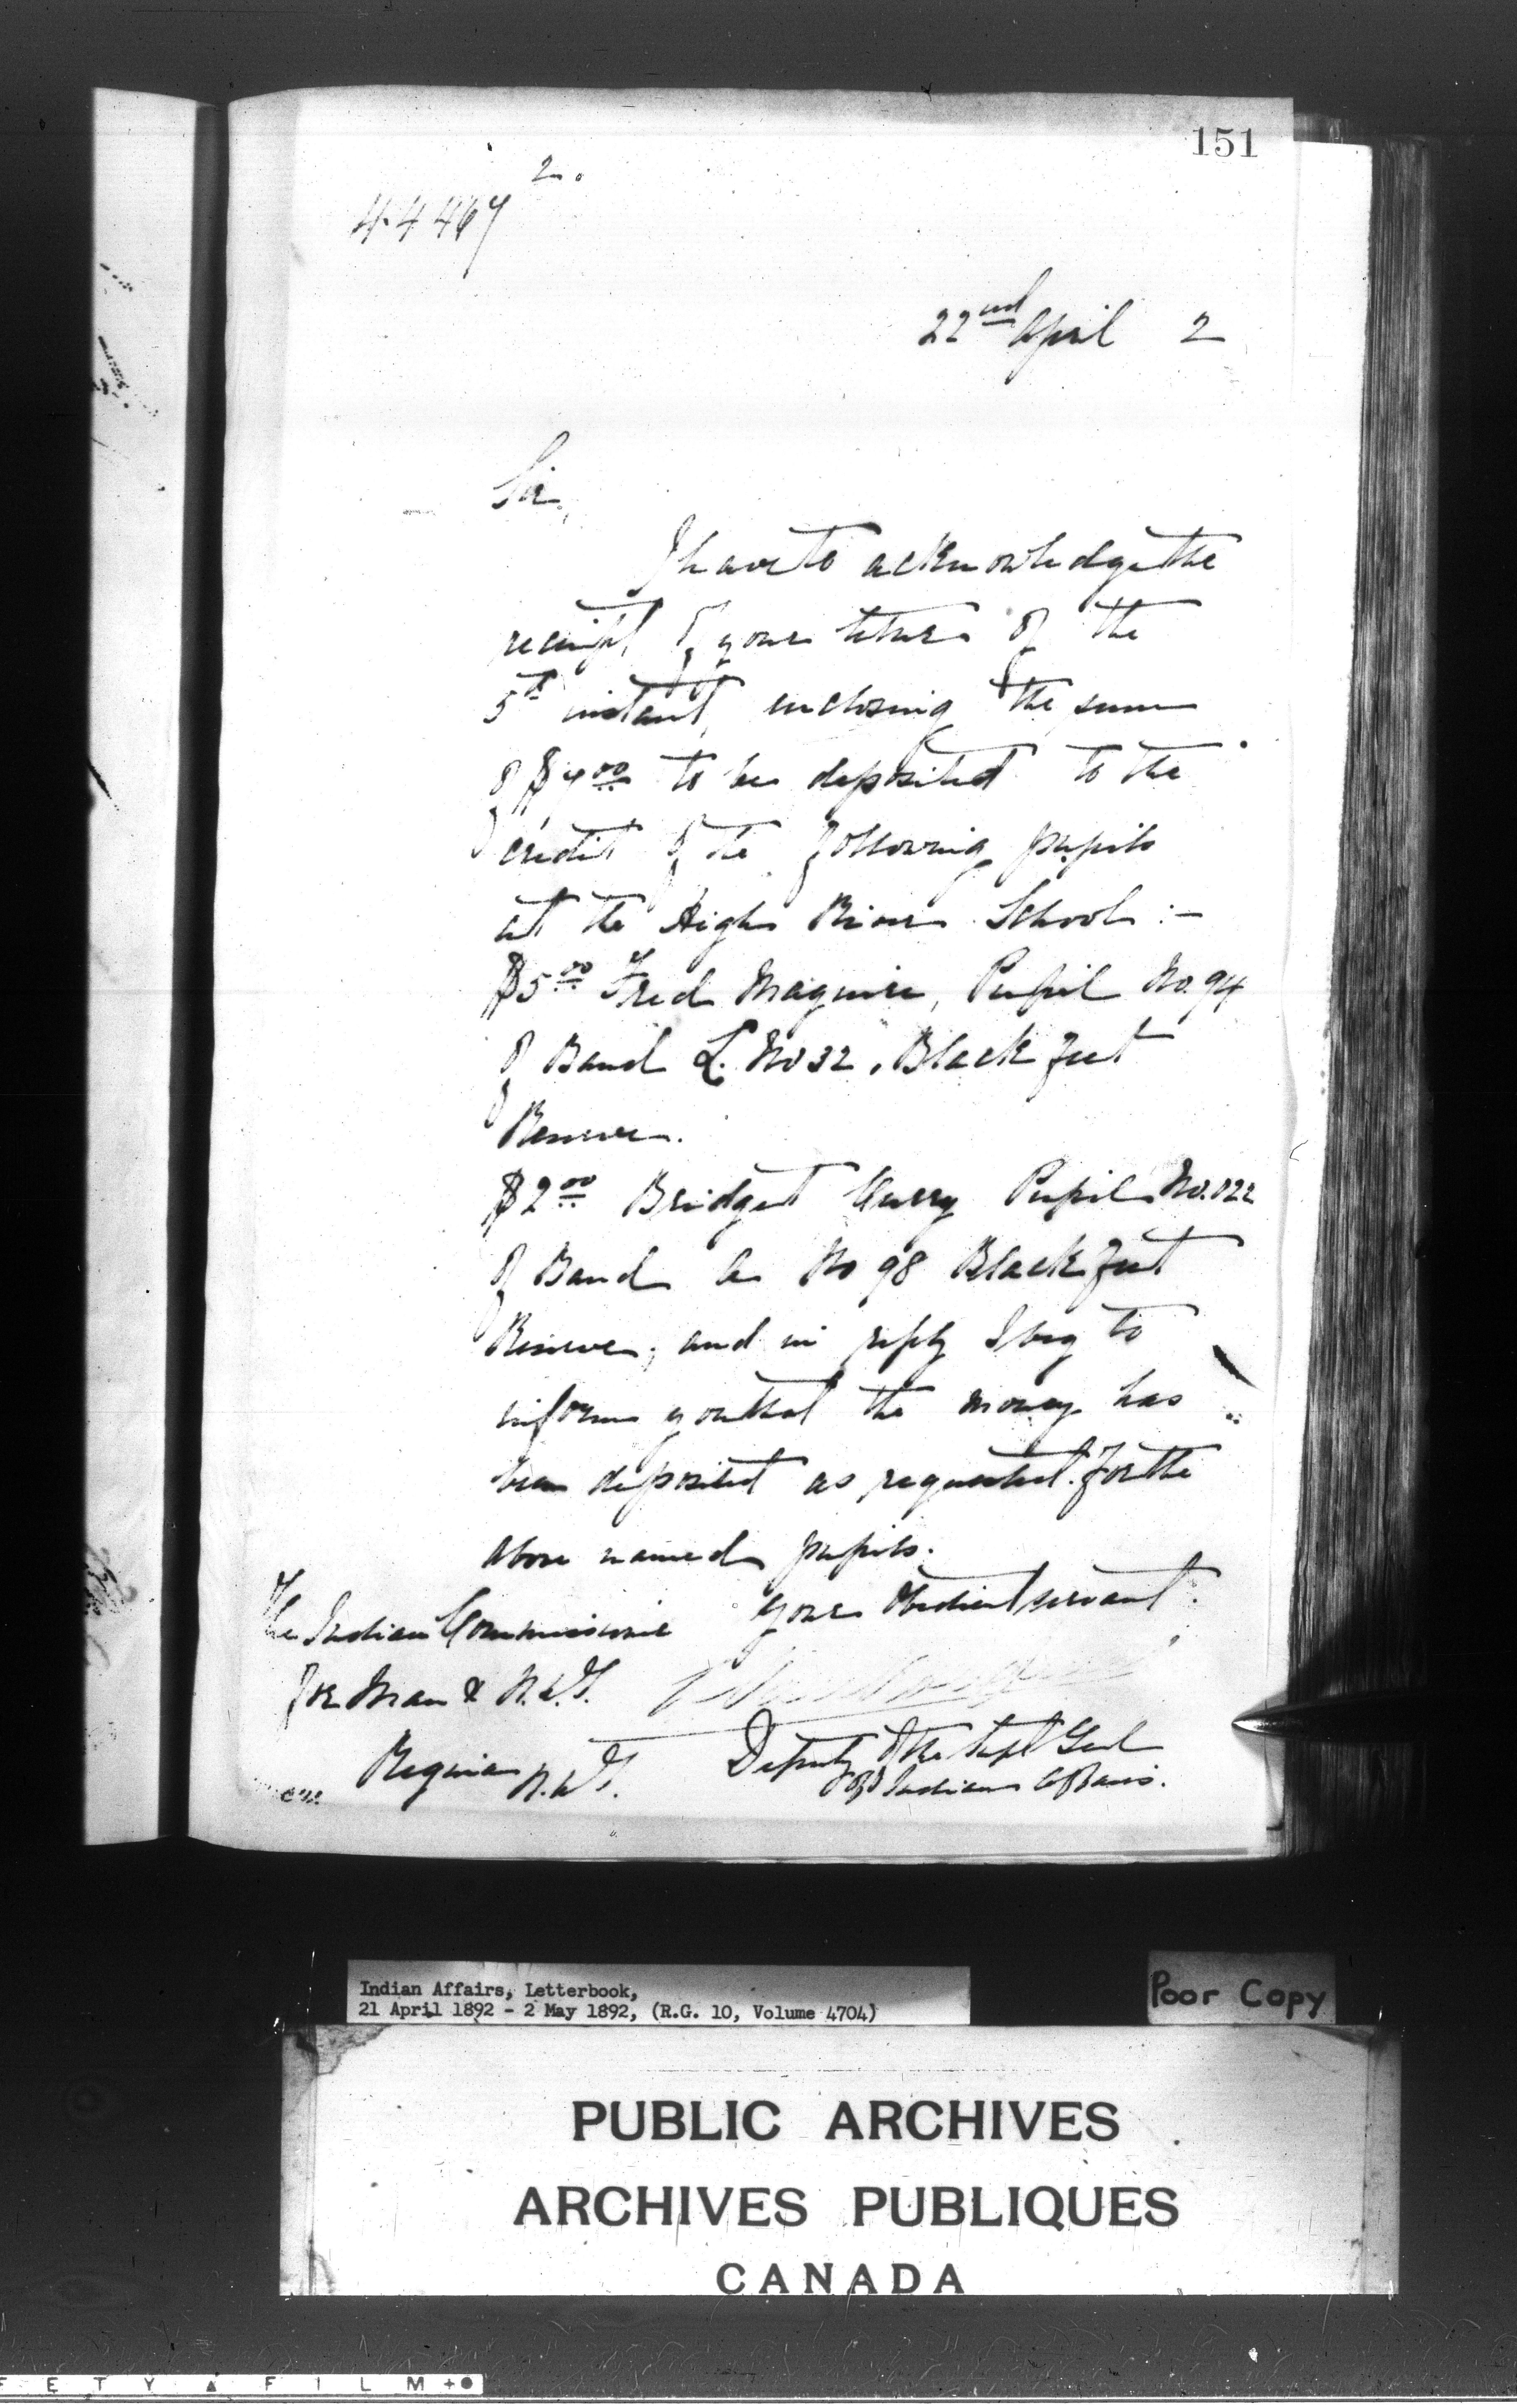 151
2.
44467
22nd April 2
Sir,
I have to acknowledge the
receipt of your letter of the
5th instant, enclosing the sum
of $7.00 to be deposited to the
credit of the following pupils
at the High River School :-
$5.00 Fred Maguire, Pupil No. 94
of Band L. No 32, Blackfeet
Reserve.
$2.00 Bridget Curry Pupil No. 022
of Band A No 98 Blackfeet
Reserve, and in reply I beg to
inform you that the money has
been deposited as requested for the
above named pupils.
Your obedient servant.
The Indian Commissioner
for Man & N.W.T.
Regina N.W.T.
Deputy of the Supt Genl
of Indian Affairs.
Indian Affairs, Letterbook,
21 April 1892 - 2 May 1892, (R.G. 10, Volume 4704)
Poor Copy
PUBLIC ARCHIVES
ARCHIVES PUBLIQUES
CANADA
F E T Y ▲ F I L M